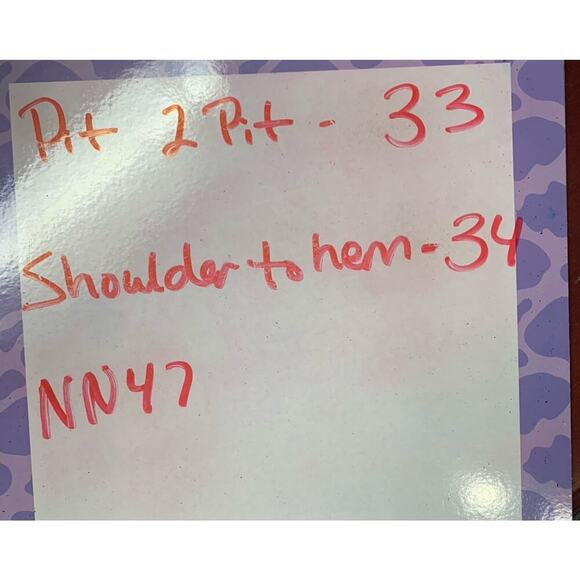 Pit 2 Pit - 33
Shoulder to hem - 34
NN47